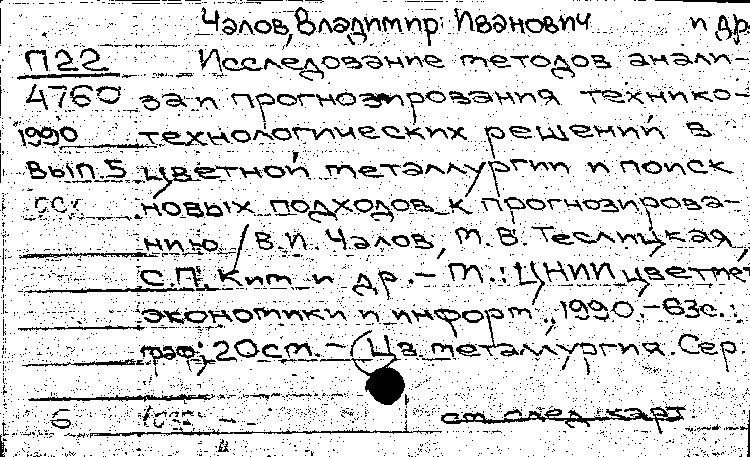 Чалов, Владимир Иванович и др.
П22 Исследование методов анали-
4760 за и прогнозирования технико-
1990 технологических решений в
Вып.5 цветной металлургии и поиск
новых подходов к прогнозирова-
нию / В.И. Чалов, М.В. Теслицкая,
С.П. Ким и др. – М.: ЦНИИцветмет
экономики и информ., 1990. – 63с.:
граф; 20см. – (Цв. металлургия. Сер.
6 см. след. карт.